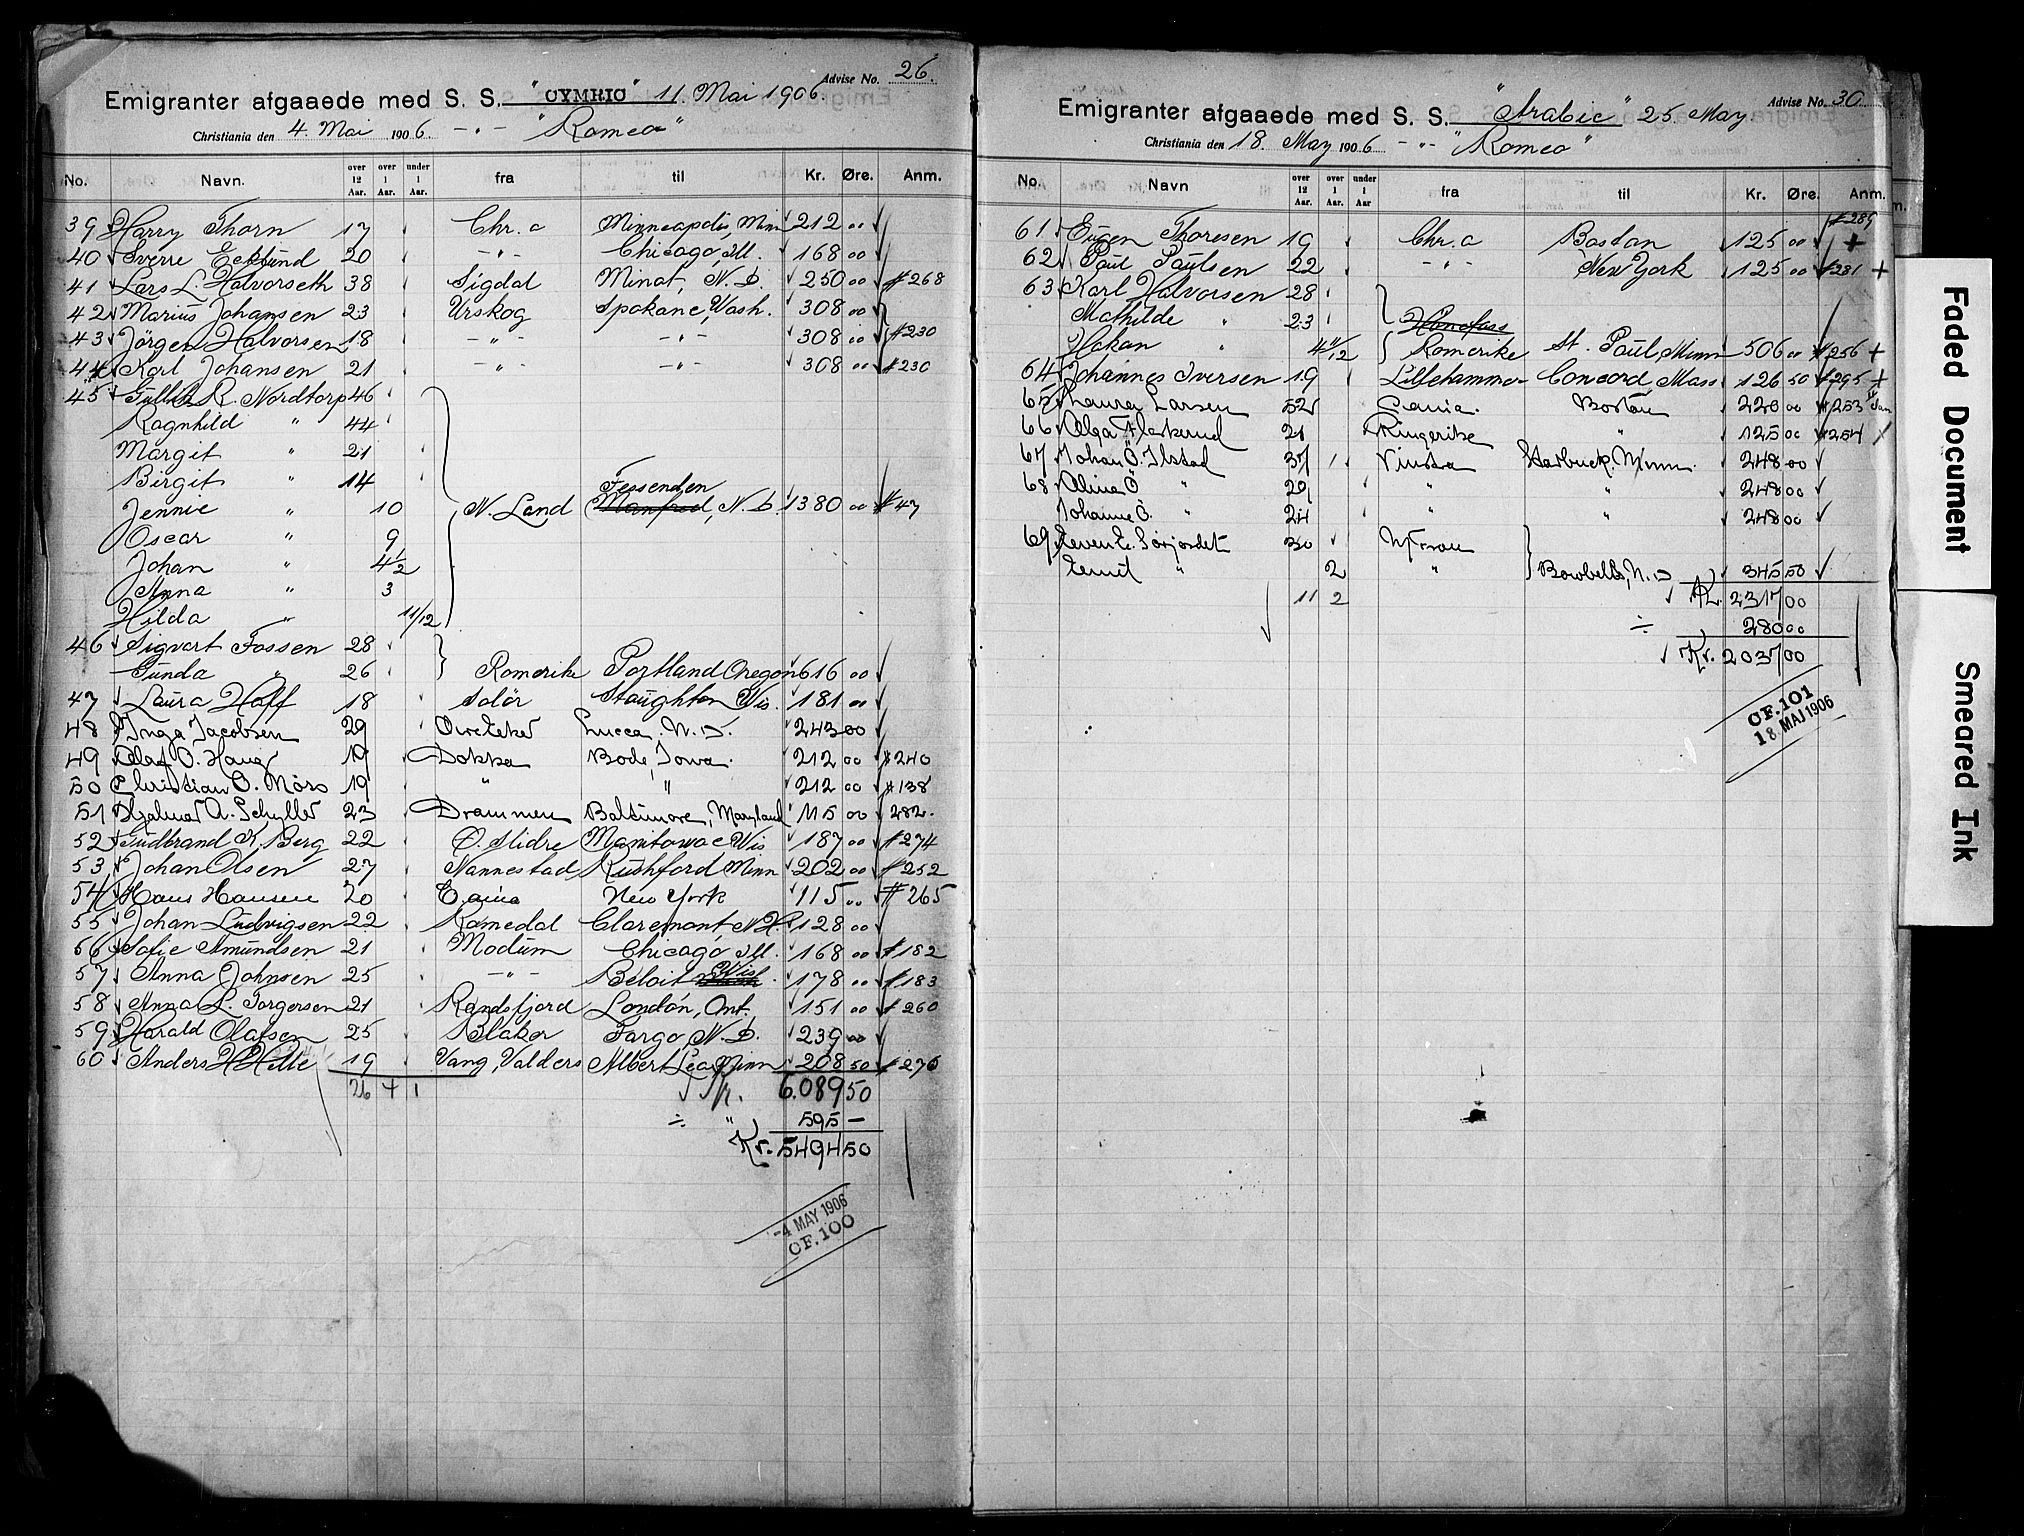 Advise No. 26.
Emigranter afgaaede med S. S. "CYMRIC" 11. Mai 1906.
Christiania den 4. Mai 1906. -"- "Romeo"
No. Navn. over 12 Aar. over 1 Aar. under 1 Aar. fra til Kr. Øre. Anm.
39 Harry Thorn 17 Chr.a Minneapolis, Minn 212 00
40 Sverre Ecklund 20 -"- Chicago, Ill. 168 00
41 Lars L. Halvorseth 38 Sigdal Minot, N. D. 250 00 #268
42 Marius Johansen 23 Urskog Spokane, Wash. 308 00
43 Jörgen Halvorsen 18 -"- -"- 308 00 #230
44 Karl Johansen 21 -"- -"- 308 00 #230
45 R. Nordtorp 46
Ragnhild " 44
Margit " 21
Birgit " 14
Fessenden
Jennie " 10 N. Land Manfred, N. D. 1380 00 #47
Oscar " 9
Johan " 4 1/2
Anna " 3
Hilda " 11/12
46 Sigvart Fossen 28
Gunda " 26 Romerike Portland Oregon 616 00
47 Laura Hoff 18 Solör Stoughton Wis. 181 00
48 Inga Jacobsen 29 Lucca, N. D. 243 00
49 Olaf O. Haug 19 Dokka Bode, Iowa. 212 00 #240
50 Christian O. Möro 19 " " 212 00 #138
51 Hjalmar A. Schyller 23 Drammen Baltimore, Maryland 115 00 282.
52 Gudbrand K. Berg 22 Ö. Slidre Manitowoc Wis 187 00 #274
53 Johan Olsen 27 Nannestad Rushford Minn 202 00 #252
54 Hans Hansen 20 New York 115 00 #265
55 Johan Ludvigsen 22 Romedal Claremont N.H. 128 00
56 Sofie Amundsen 21 Modum Chicago Ill. 168 00 #182
57 Anna Johnsen 25 -"- Beloit Wis. 178 00 #183
58 Anna L. Torgersen 21 Randsfjord London, Ont. 151 00 #260
59 Harald Olafsen 25 Blaker Fargo, N. D. 239 00
60 Anders H Helle 19 Vang, Valders Albert Lea, Minn 208 50 #276
26 4 1 Kr. 6.089 50
÷ " 595 —
Kr. 5494 50
-4 MAY 1906
CF. 100
Advise No. 30
Emigranter afgaaede med S. S. "Arabic" 25. May
Christiania den 18. May 1906 -"- "Romeo"
No. Navn over 12 Aar. over 1 Aar. under 1 Aar fra til Kr. Øre. Anm.
#289
61 Eugen Thoresen 19 Chr.a Boston 125 00 +
62 Paul Paulsen 22 -"- New York 125 00 #281 +
63 Karl Halvorsen 28
Mathilde " 23 Hönefoss
Hakan " 4 11/12 Romerike St. Paul, Minn 506 00 #256 +
64 Johannes Iversen 19 Lillehammer Concord Mass 126 50 #295 +
65 Laura Larsen 52 Boston 220 00 #253
66 Olga 21 Ringerike " 125 00 #254
67 Johan O. Ilstad 37 Vinstra Starbuck, Minn. 248 00
68 Alina O " 29 " " 248 00
Johanne O. " 24 " " 248 00
69 Even E. Sörjordet 30
" 2 " Bowbells, N. D 345 50
11 2 Kr. 2317 00
÷ 280 00
Kr. 2037 00
CF. 101
18 MAJ 1906
Faded Document
Smeared Ink